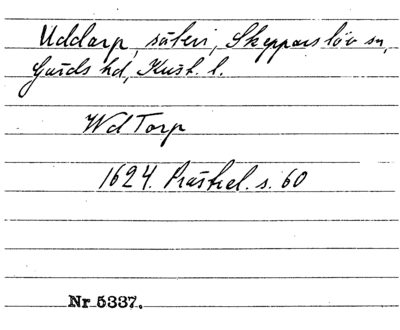 Uddarp, säteri, Skepparslöv sn,
Gärds hd, Krist. l.
Wd Torp
1624. Prästrel. s. 60
Nr 5337.